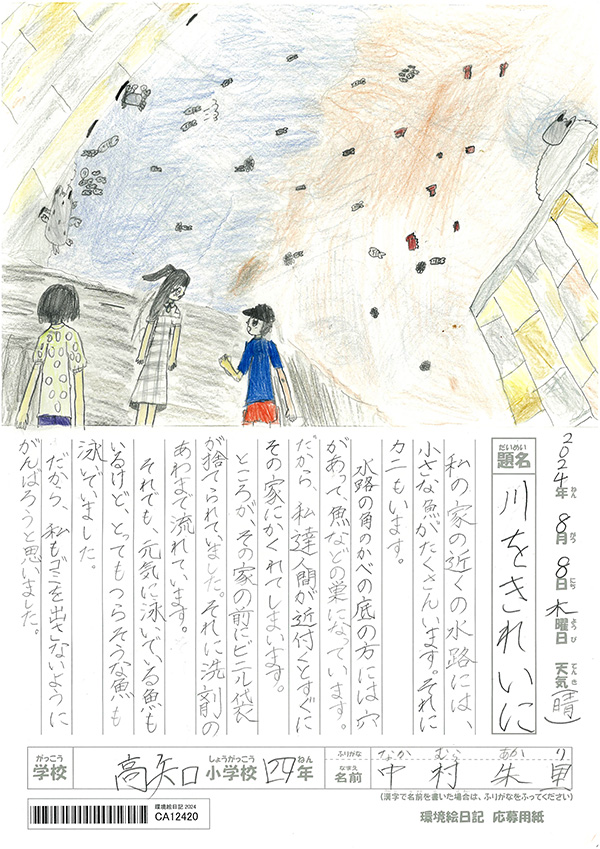 2024年8月8日木曜日 天気(晴)
ねん がつ にち ようび てんき
だいめい
題名 川をきれいに
私の家の近くの水路には、
小さな魚がたくさんいます。それに
カニもいます。
水路の角のかべの底の方には穴
があって、魚などの巣になっています。
だから、私達人間が近付くとすぐに
その家にかくれてしまいます。
ところが、その家の前にビニル袋
が捨てられていました。それに洗剤の
あわまで流れています。
それでも、元気に泳いでいる魚も
いるけど、とってもつらそうな魚も
泳いでいました。
だから、私もゴミを出さないように
がんばろうと思いました。
がっこう しょうがっこう ねん
学校 高矢口小学校 四年
ふりがな なか むら あか り
なまえ
名前 中村朱里
(漢字で名前を書いた場合は、ふりがなをふってください)
環境絵日記 2024
CA12420
環境絵日記 応募用紙